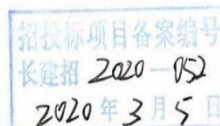 招投标项目备案编号
长建招 2020-052
2020 年 3 月 5 日